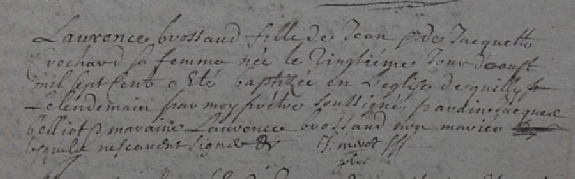 Laurence brossaud fille de Jean & de Jacquette
rochard sa femme née le vingtiéme Jour daoust
mil sept cent a Eté baptizée en L'eglise de quilly
Le lendemain par moy prêtre soussigné parain Jacques
belliot & maraine Laurence brossaud non mariée
lesquels ne scavent signer